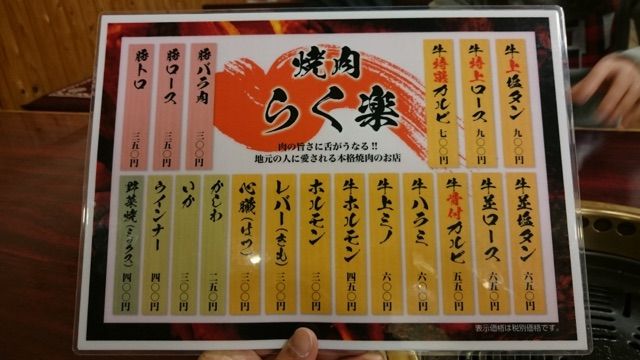 焼肉
らく楽
肉の旨さに舌がうなる!!
地元の人に愛される本格焼肉のお店
牛上塩タン 九〇〇円
牛特上ロース 九〇〇円
牛特選カルビ 七〇〇円
豚バラ肉 三〇〇円
豚ロース 三五〇円
豚トロ 三五〇円
牛並塩タン 六五〇円
牛並ロース 六五〇円
牛骨付カルビ 五五〇円
牛ハラミ 六〇〇円
牛上ミノ 六〇〇円
牛ホルモン 四五〇円
ホルモン 三〇〇円
レバー(きも) 三〇〇円
心臓(はつ) 三〇〇円
かしわ 二五〇円
いか 三〇〇円
ウインナー 四〇〇円
野菜焼(ミックス) 四〇〇円
表示価格は税別価格です。